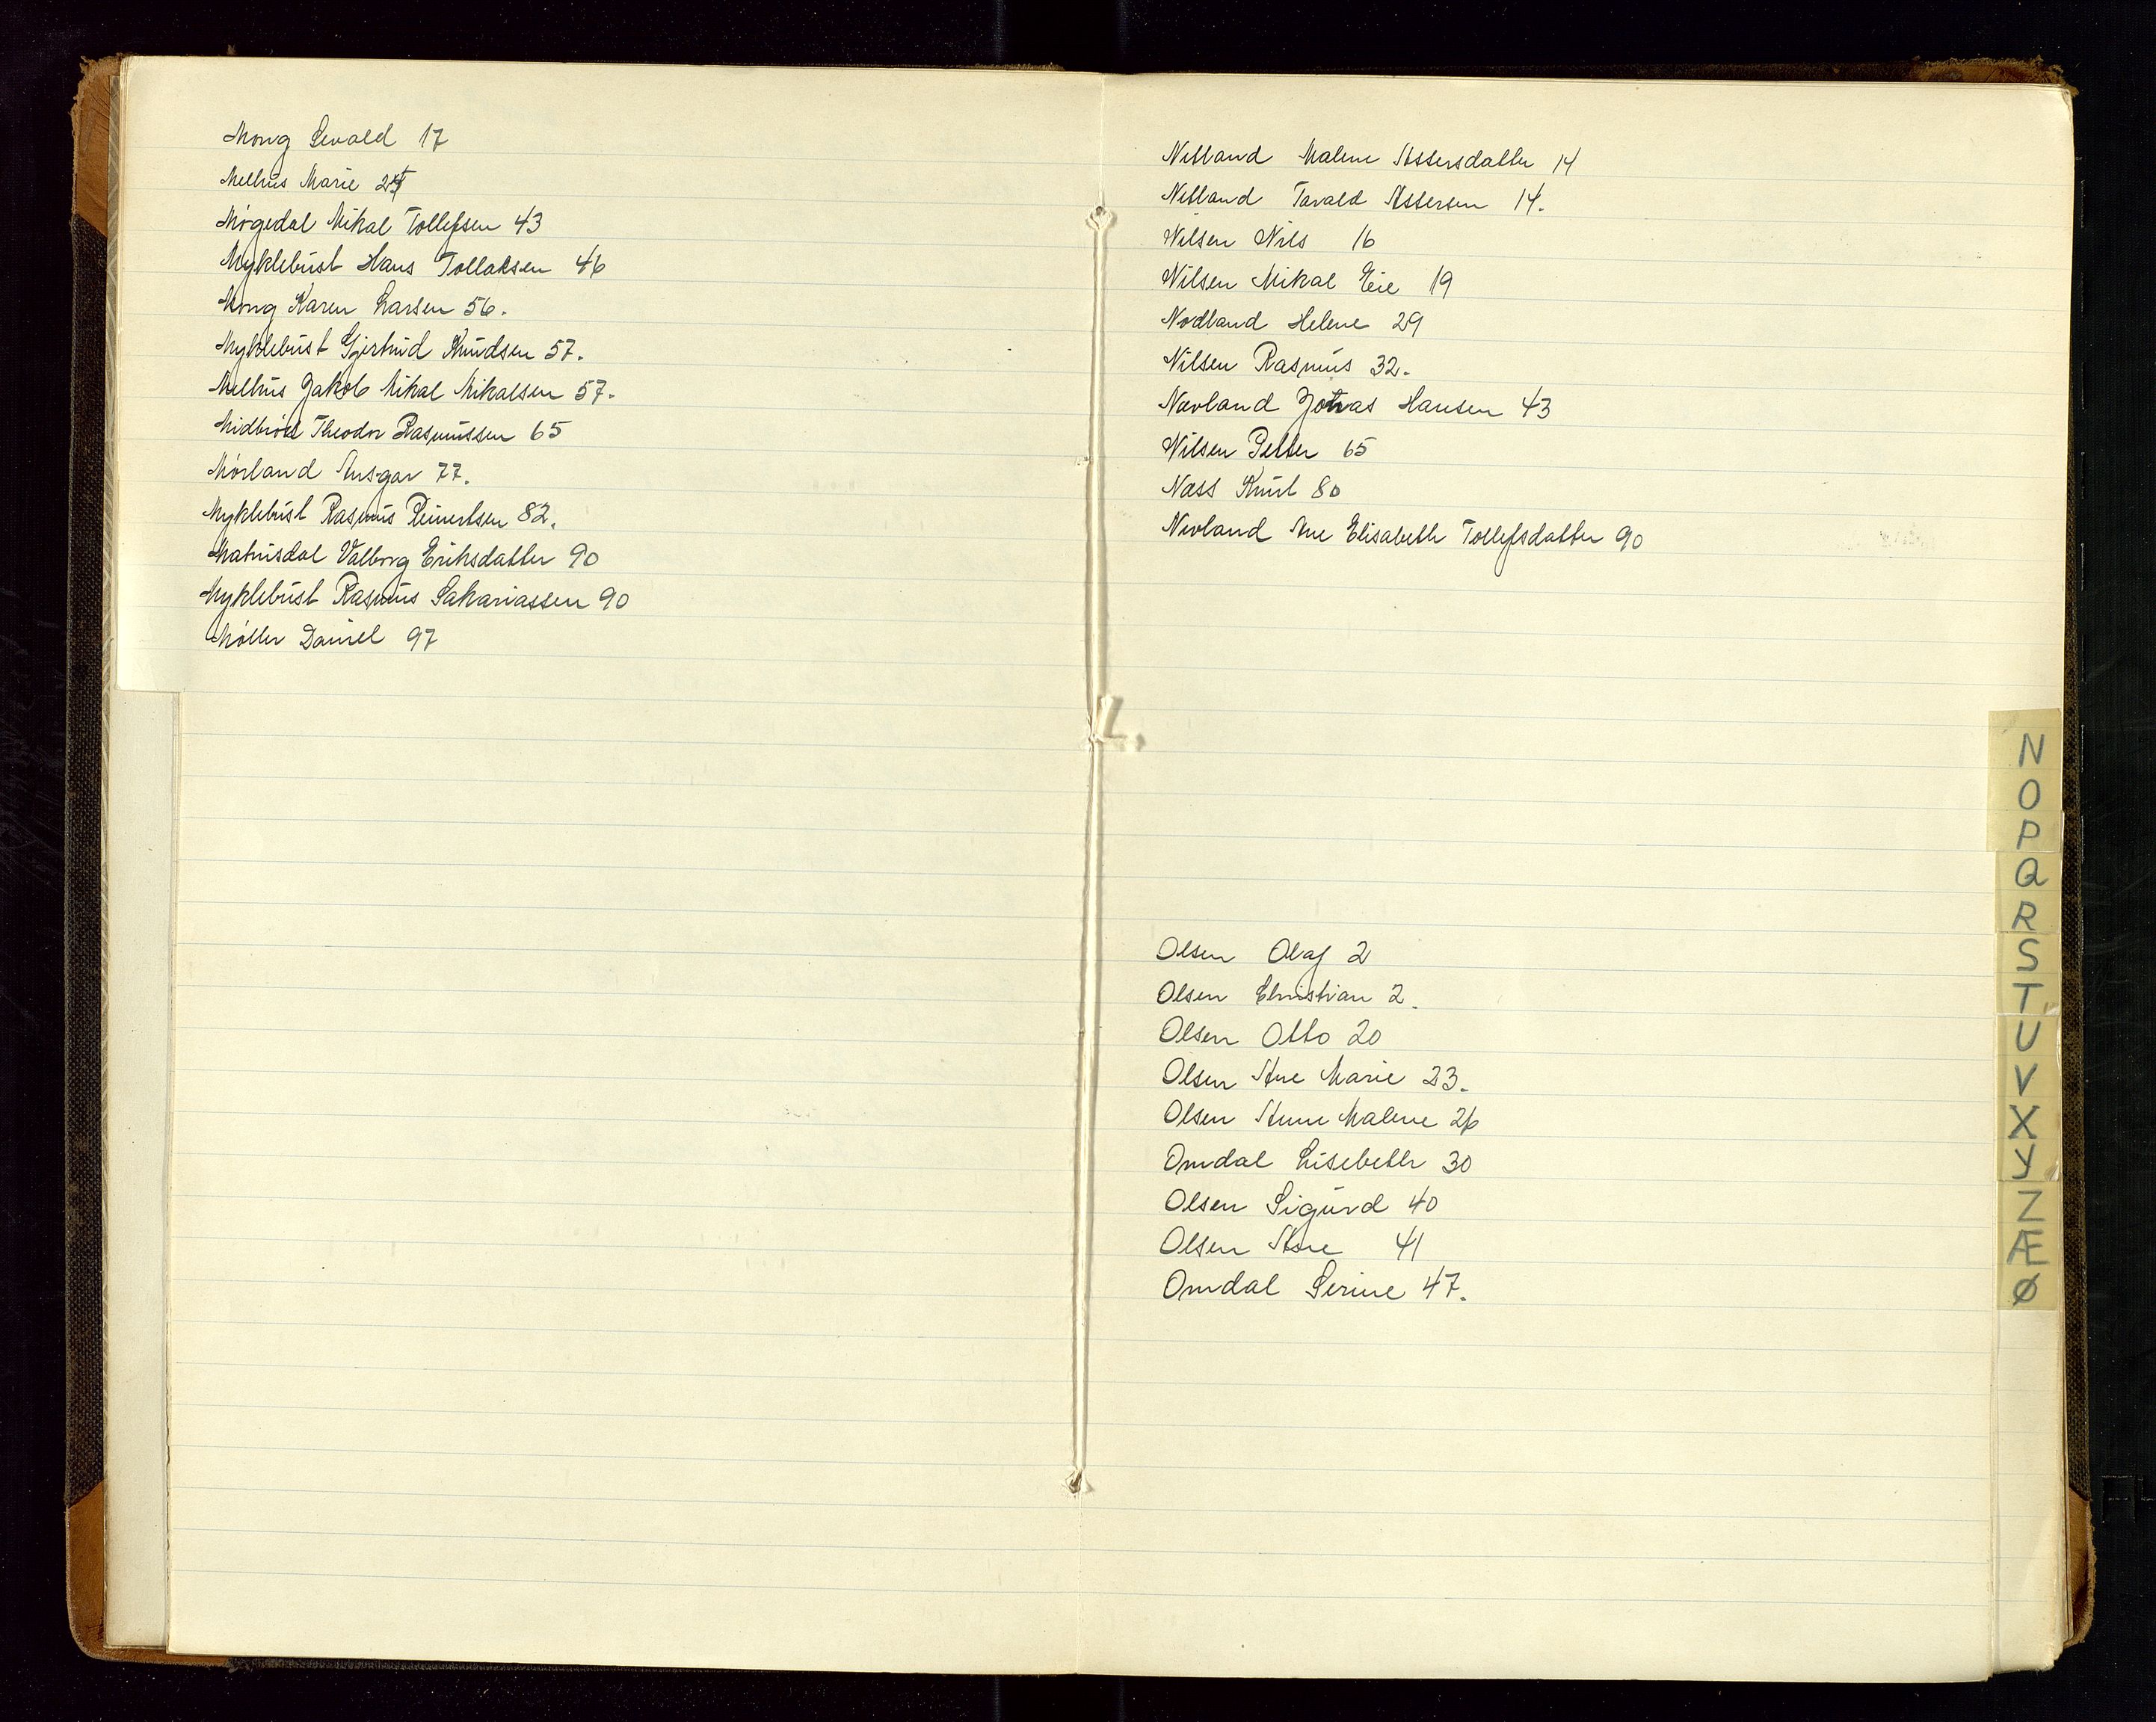 Mong Sevald 17
Melhus Marie 24
Møgedal Mikal Tollefsen 43
Myklebust Hans Tollaksen 46
Mong Karen Larsen 56.
Myklebust Gjertrud Knudsen 57.
Melhus Jakob Mikal Mikalsen 57.
Midbrød Theodor Rasmussen 65
Mørland Ansgar 77.
Myklebust Rasmus Reinertsen 82.
Matnisdal Valborg Eriksdatter 90
Myklebust Rasmus Sakariassen 90
Møller Daniel 97
Netland Malene Assersdatter 14
Netland Tarald Assersen 14.
Nilsen Nils 16
Nilsen Mikal Eie 19
Nodland Helene 29
Nilsen Rasmus 32.
Nevland Jonas Hansen 43
Nilsen Petter 65
Næss Knut 80
Nevland Ane Elisabeth Tollefsdatter 90
Olsen Olaf 2
Olsen Christian 2.
Olsen Otto 20
Olsen Ane Marie 23.
Olsen Anne Malene 26
Omdal Lisebeth 30
Olsen Sigurd 40
Olsen Ane 41
Omdal Serine 47.
N
O
P
Q
R
S
T
U
V
X
Y
Z
Æ
Ø